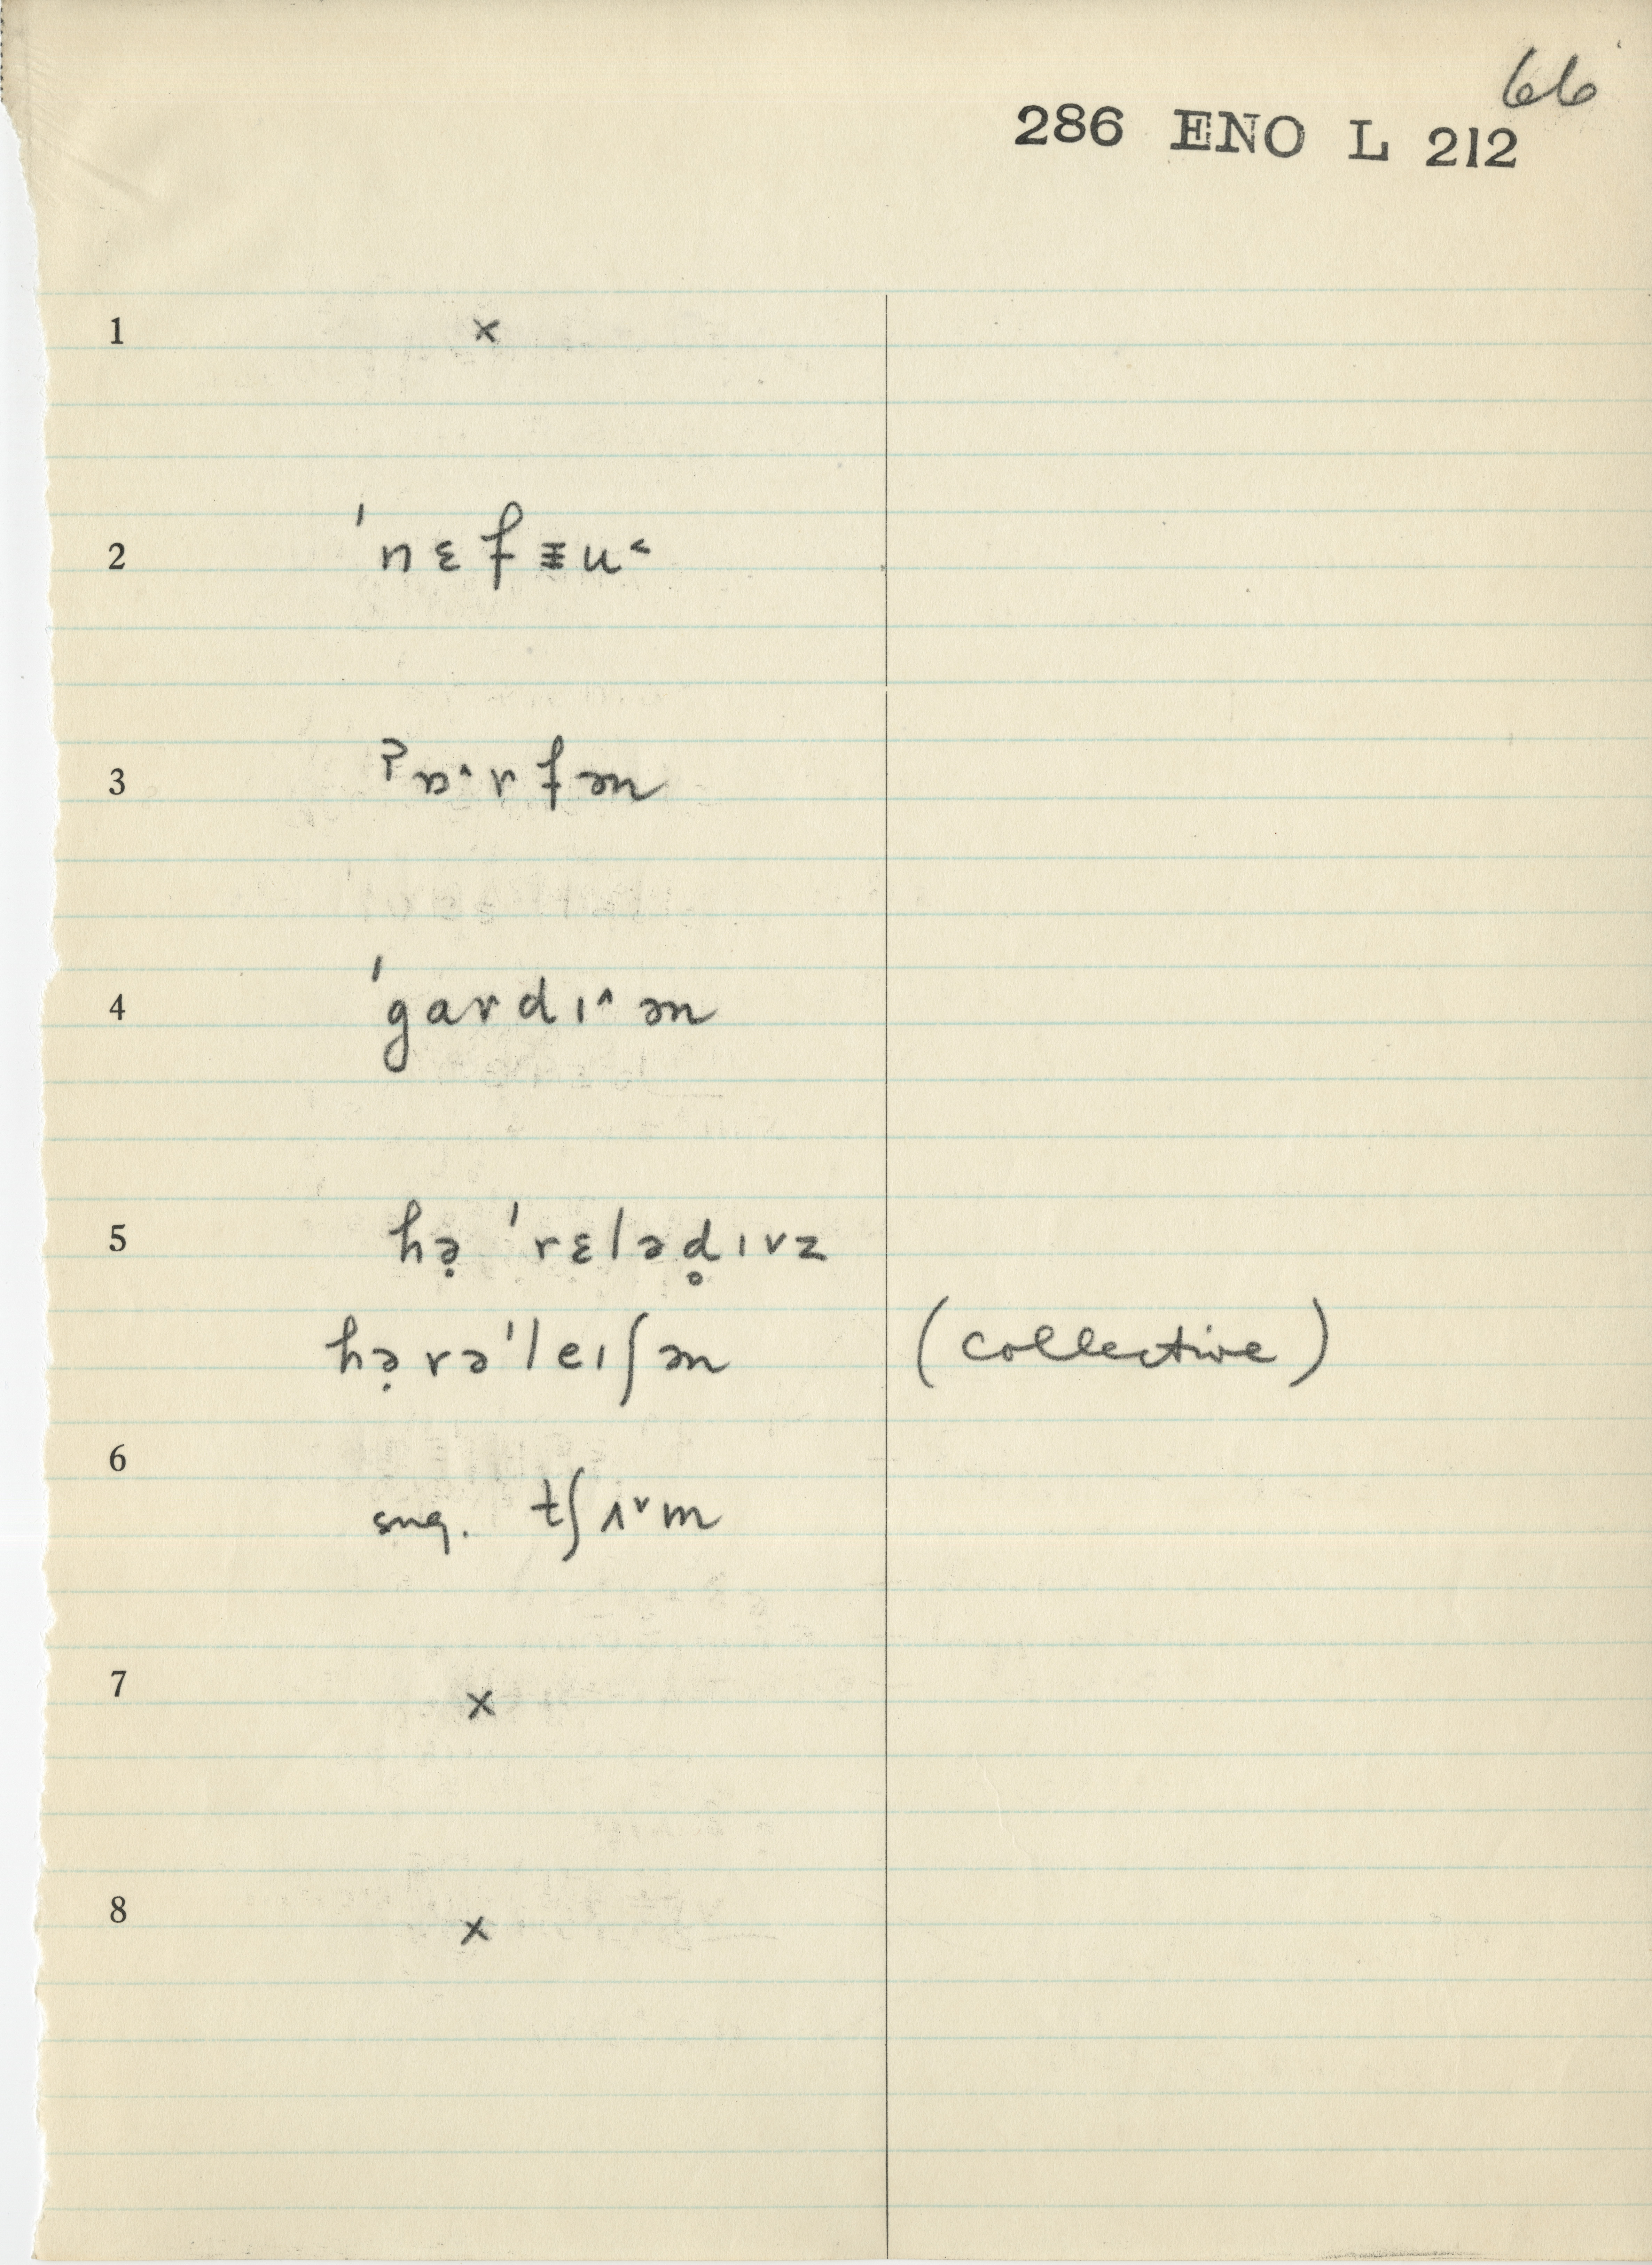 66
286 ENO L 212
1 ×
2 ˈnɛfᵻu˂
3 ˀɒ˄rfən
4 ˈgardɪ˄ən
5 hə̣ ˈrɛləd̥ɪvz
hə̣rəˈleɪʃən (collective)
6 sug. tʃʌ˅m
7 ×
8 ×